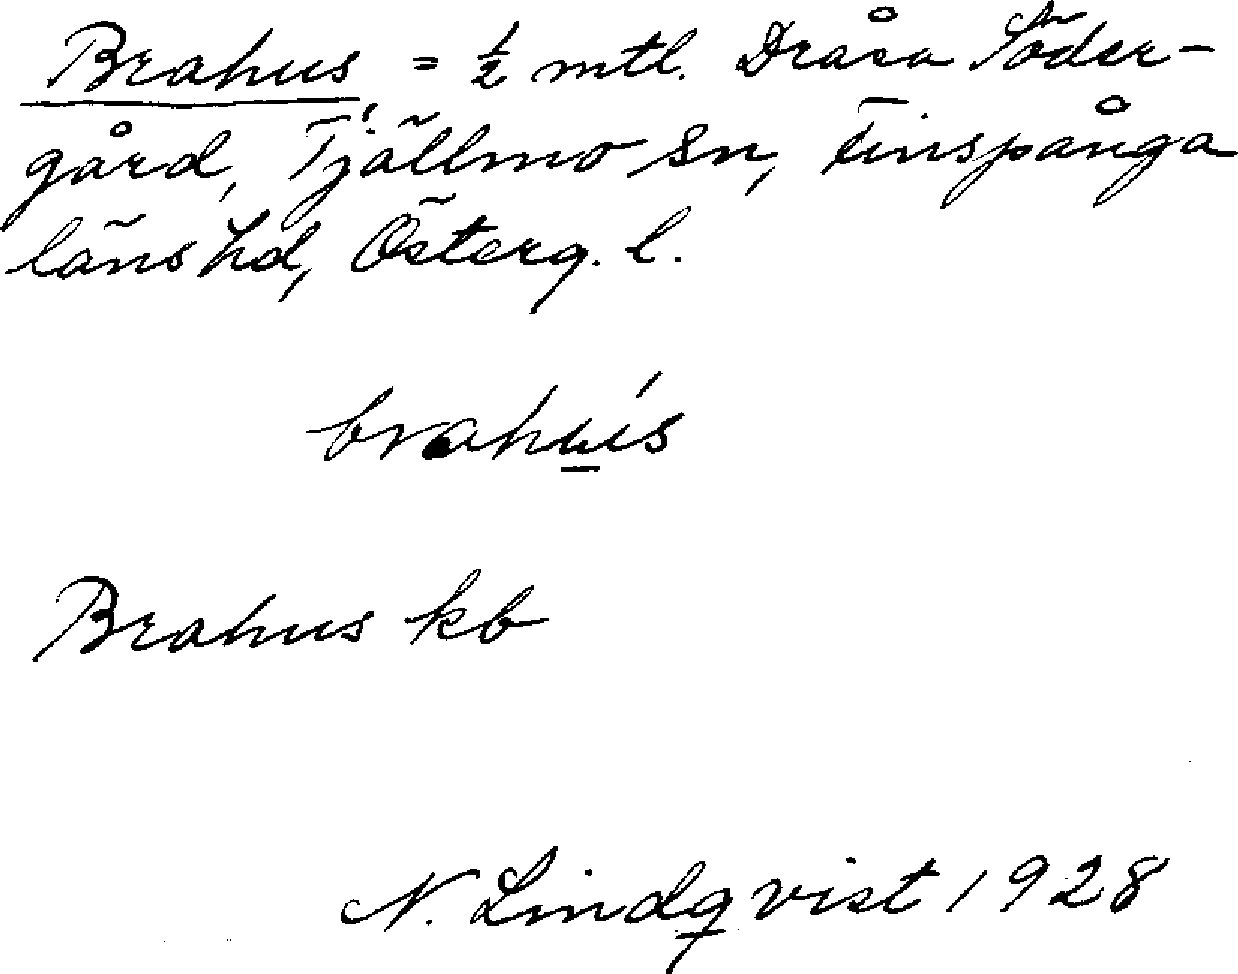 Brahus = ½ mtl. Dråsa Söder-
gård, Tjällmo sn, Finspånga
läns hd, Österg. l.
brahu̲ś
Brahus kb
N. Lindqvist 1928